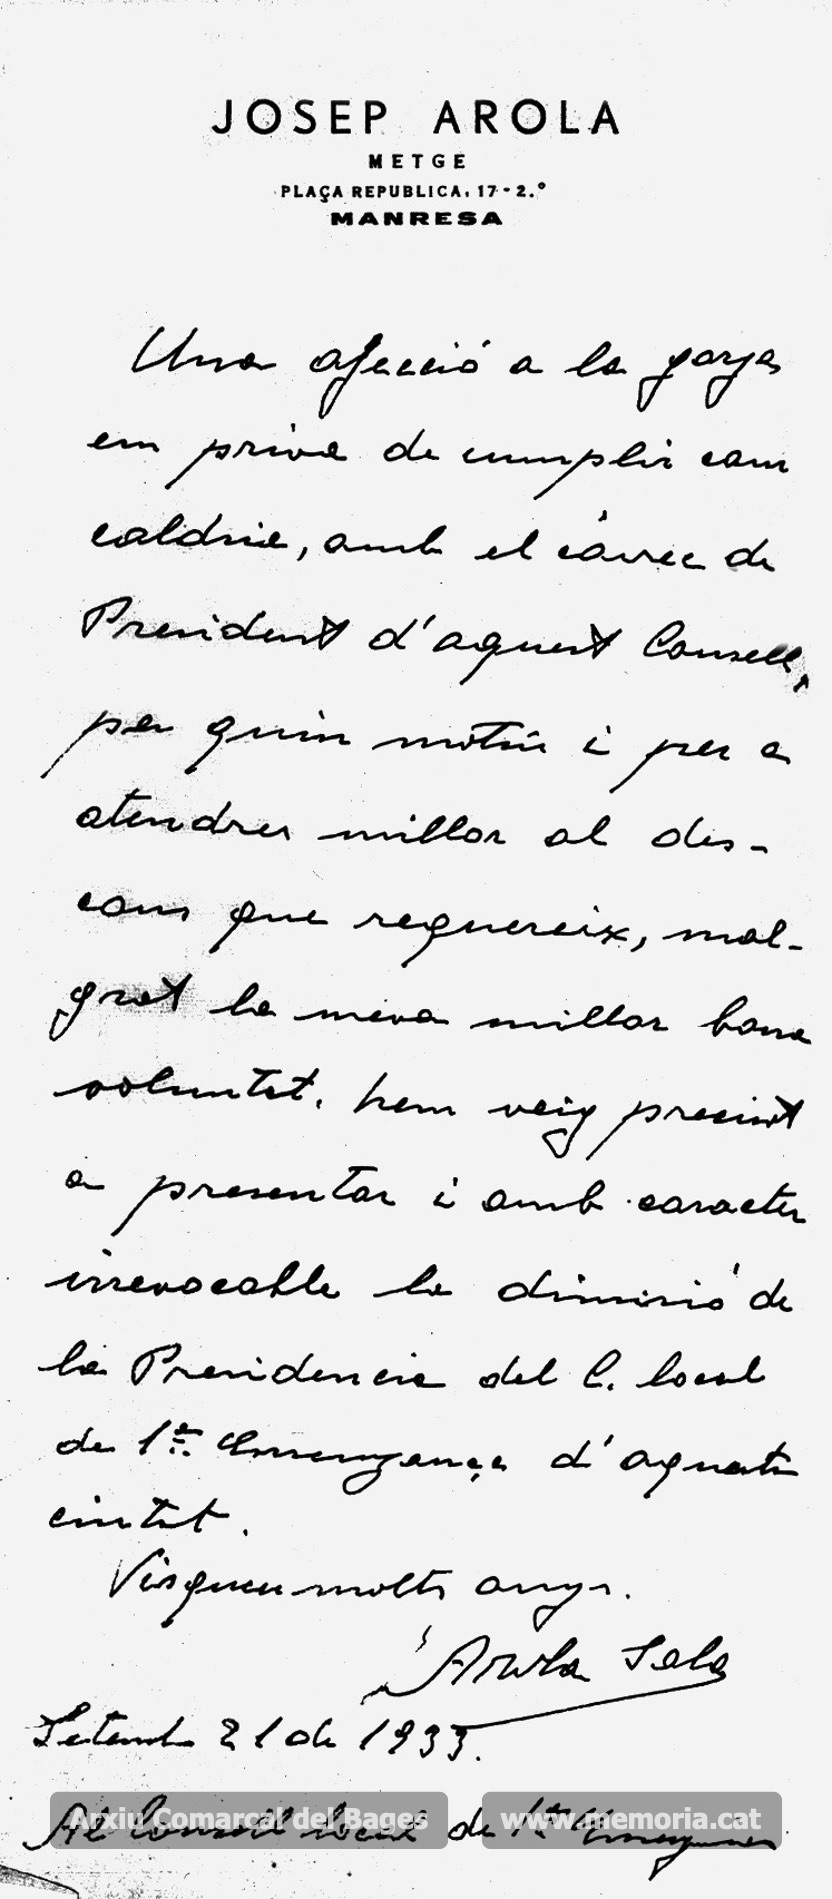 JOSEP AROLA
METGE
PLAÇA REPUBLICA, 17 - 2.º
MANRESA
Una afecció a la gorja
em priva de cumplir com
caldria, amb el càrrec de
President d'aquest Consell,
per quin motiu i per a
atendrer millor al des-
cans que requereix, mal-
grat la meva millor bona
voluntat, hem veig precisat
a presentar i amb caracter
irrevocable la dimisió de
la Presidencia del C. local
de 1ª Ensenyança d'aquesta
ciutat.
Visqueu molts anys.
Arola Sala
Setemb 21 de 1933.
Al Consell local de 1ª Ensenyança
Arxiu Comarcal del Bages
www.memoria.cat